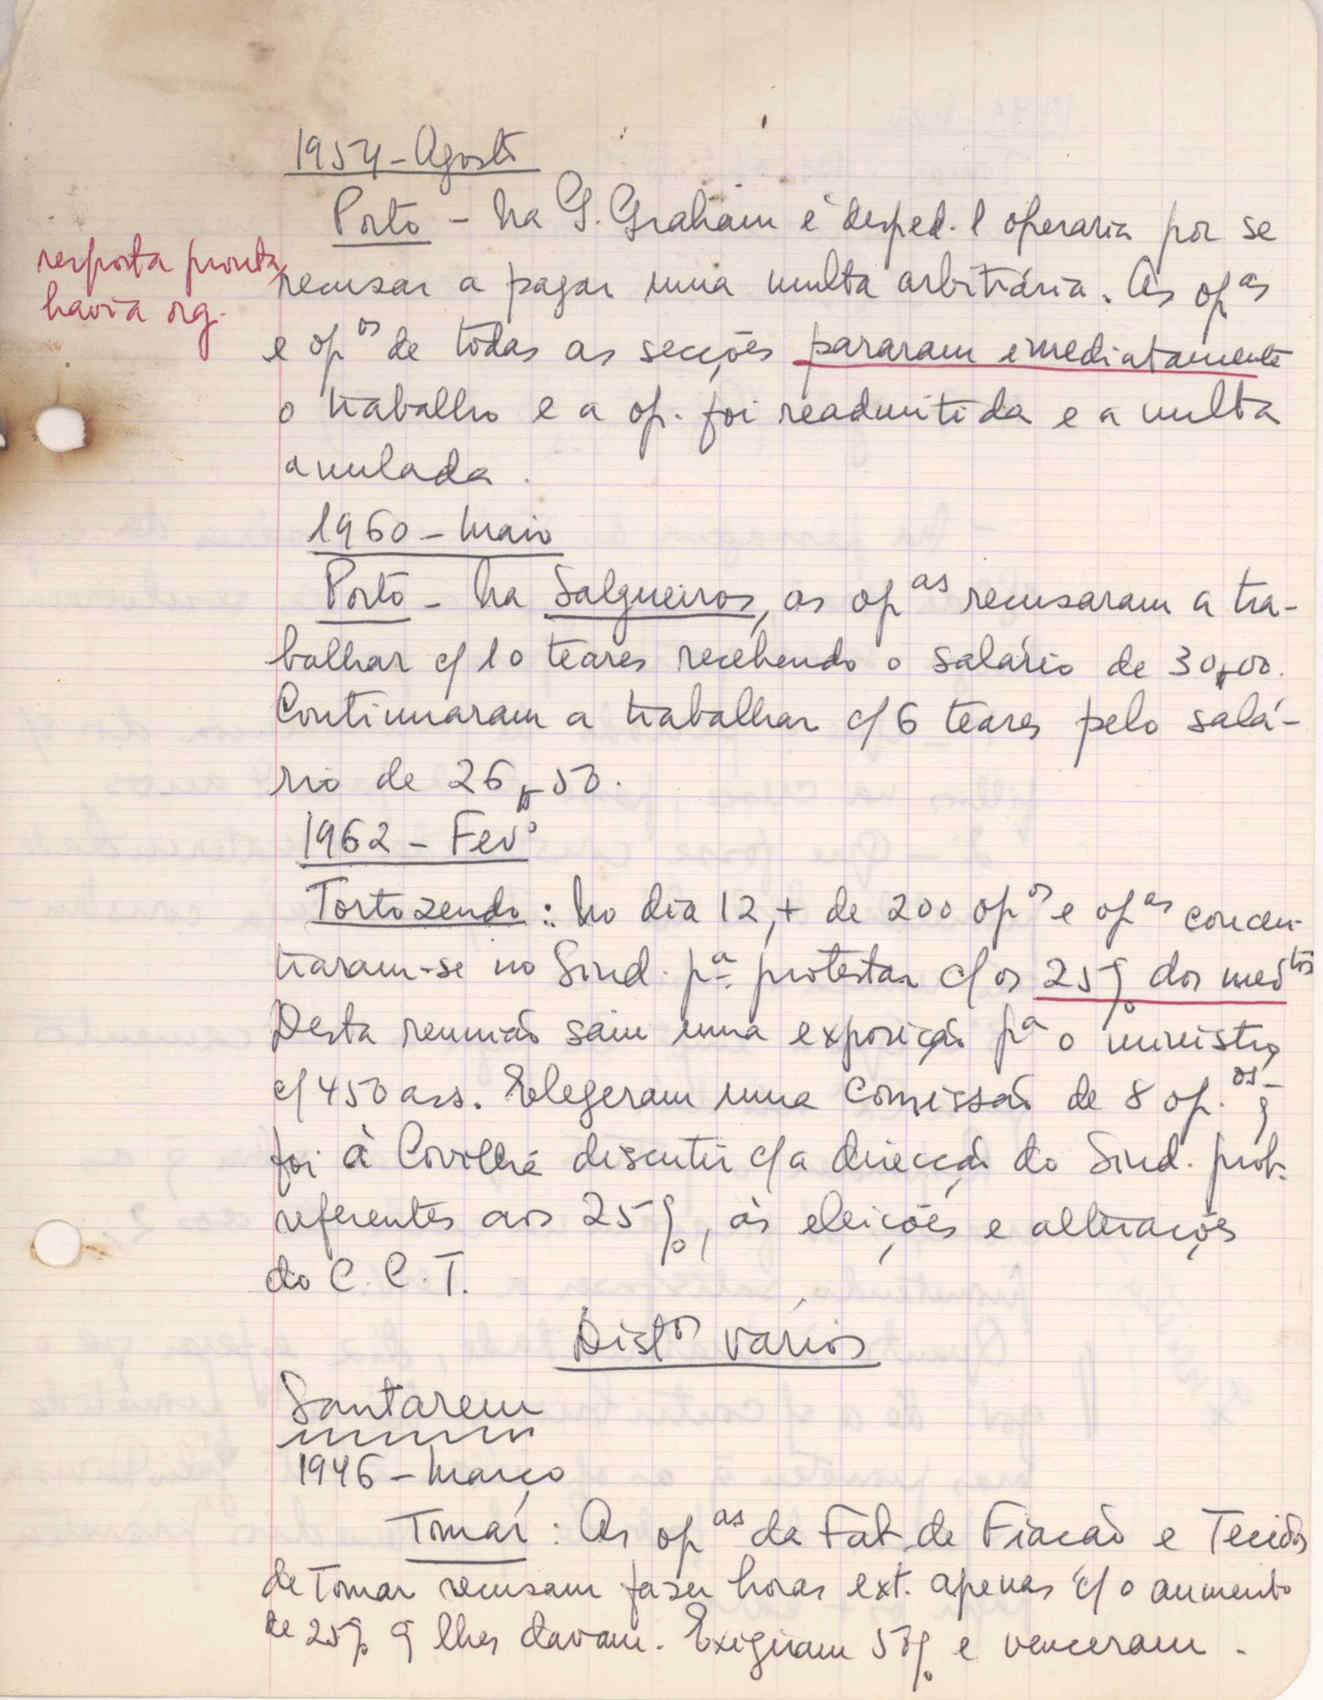 1954 - Agosto
Porto - Na G. Graham é desped. 1 operaria por se
resposta pronta
havia org.
recusar a pagar uma multa arbitrária. As opas
e opos de todas as secções pararam imediatamente
o trabalho e a op. foi readmitida e a multa
anulada.
1960 - Maio
Porto - Na Salgueiros, as opas recusaram a tra-
balhar c/ 10 teares recebendo o salário de 30$00.
Continuaram a trabalhar c/ 6 teares pelo salá-
rio de 26$50.
1962 - Fevº
Tortozendo: No dia 12, + de 200 opos e opas concen-
traram-se no Sind. pª protestar c/ os 25% dos medtos
Desta reunião saiu uma exposição pª o ministro
c/ 450 ass. Elegeram uma comissão de 8 op.os - q
foi à Covilhã discutir c/ a direcção do Sind. prob.
referentes aos 25%, às eleições e alterações
do C.C.T.
Distos vários
Santarem
1946 - Março
Tomar: As opas da Fab. de Fiacão e Tecidos
de Tomar recusam fazer horas ext. apenas c/ o aumento
de 25% q lhes davam. Exigiram 50% e venceram.